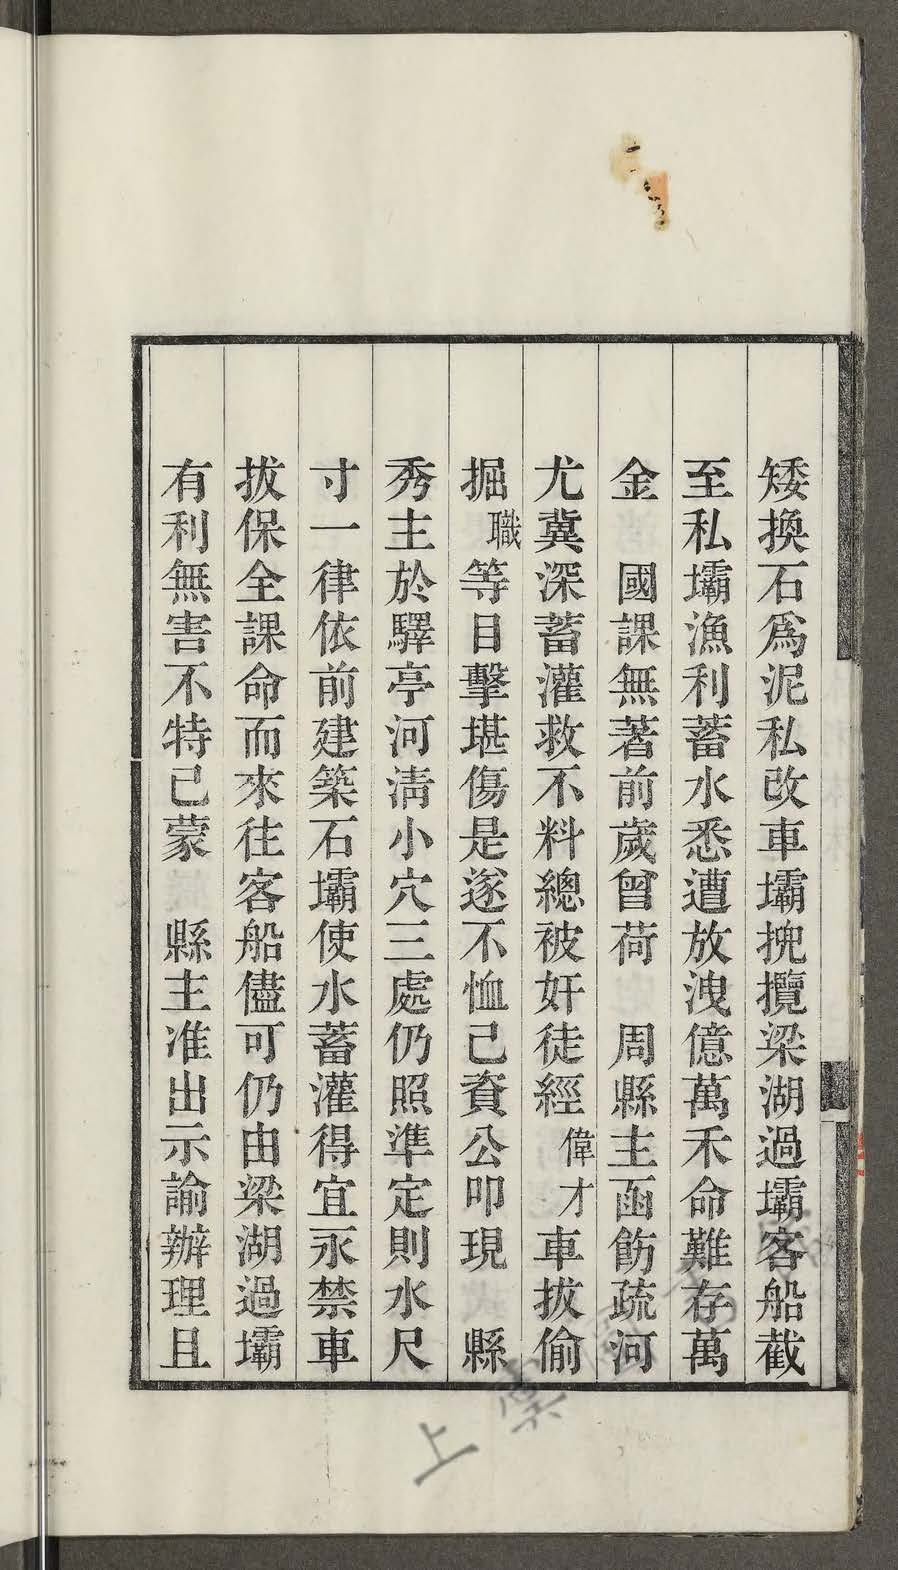 矮換石爲泥私改車壩挽攬梁湖過壩客船截
至私壩漁利蓄水悉遭放洩億萬禾命難存萬
金　國課無著前歲曾荷　周縣主函飭疏河
尤冀深蓄灌救不料總被奸徒經偉才車拔偷
掘職等目擊堪傷是遂不恤己資公叩現　縣
秀主於驛亭河淸小穴三處仍照準定則水尺
寸一律依前建築石壩使水蓄灌得宜永禁車
拔保全課命而來往客船儘可仍由梁湖過壩
有利無害不特已蒙　縣主准出示諭辦理且
上虞